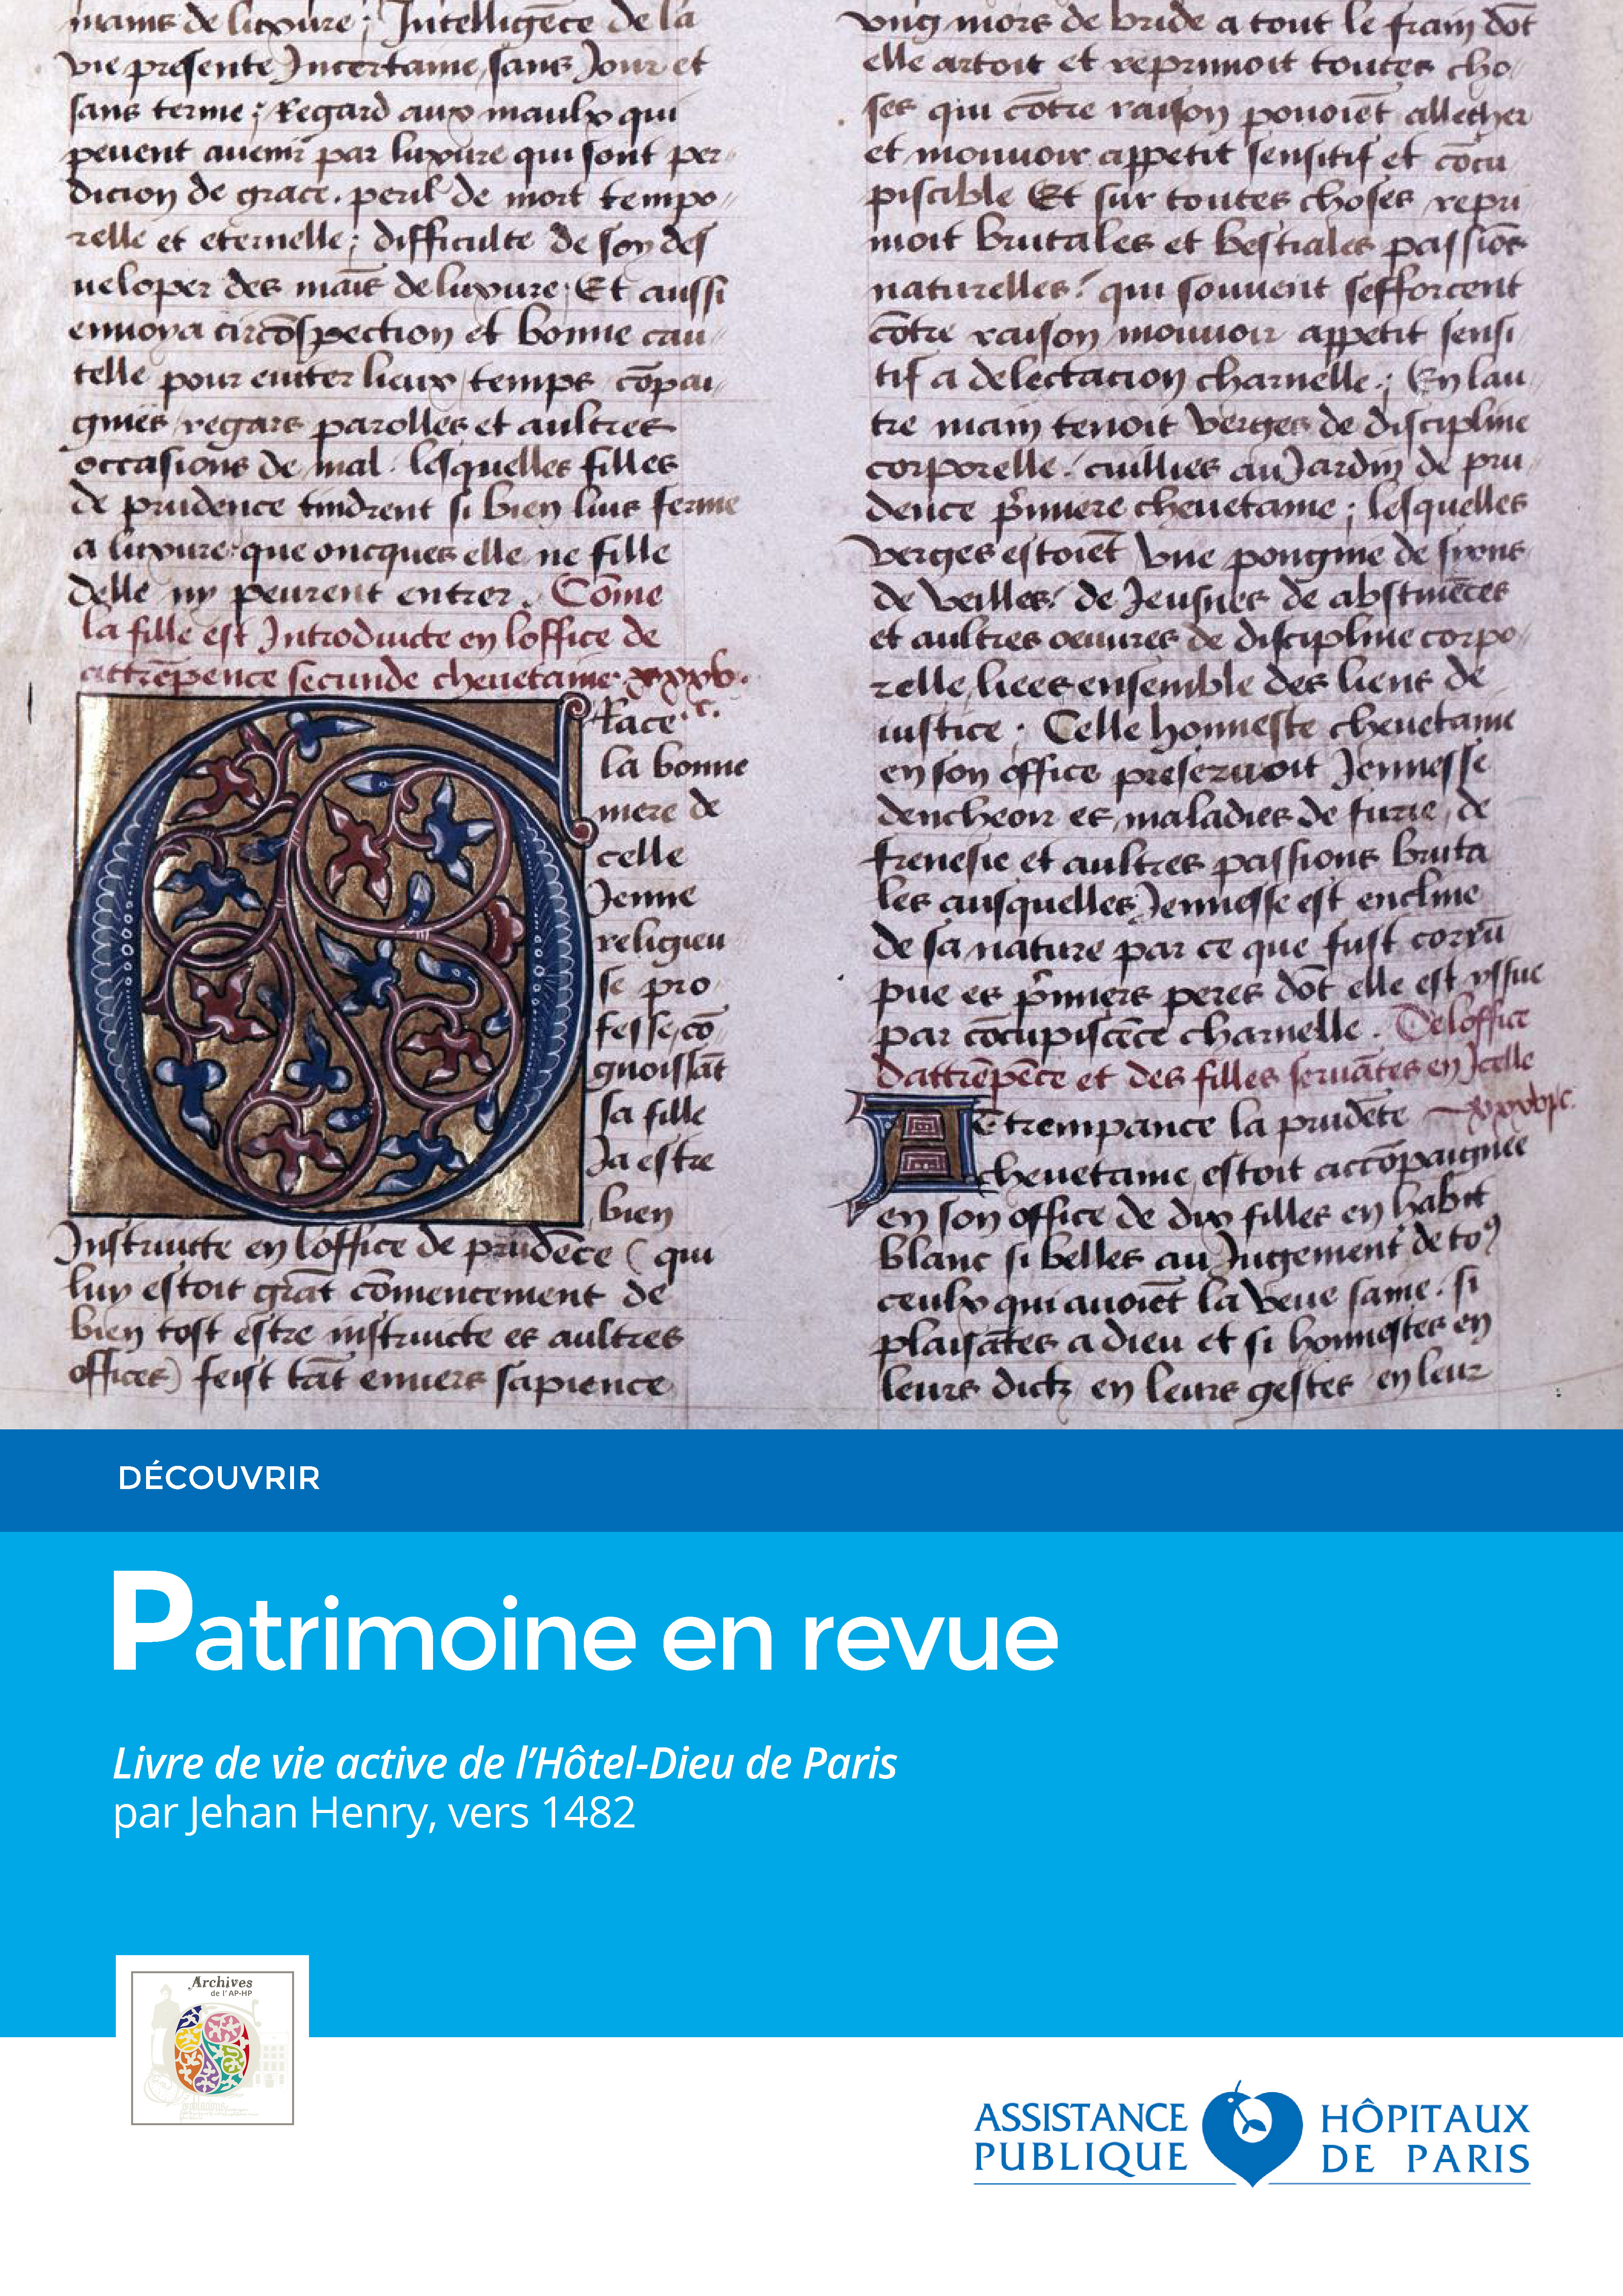 mains de luxure ; Intelligēce de la
vie presente Incertaine, sans Jour et
sans terme ; Regard aux maulx qui
peuent auenir par luxure qui sont per〃
dicion de grace. peril de mort tempo〃
relle et eternelle ; difficulte de soy des
ueloper des maīs de luxure ; Et aussi
enuoya circōspection et bonne cau〃
telle pour euiter lieux temps cōpai〃
gnies regars parolles et aultres
occasions de mal. lesquelles filles
de prudence tindrent si bien luis ferme
a luxure que oncques elle ne fille
delle ny peurent entrer. Cōme
la fille est Introducte en loffice de
attrēpence secunde cheuetaine xxxv.
c.
Grace
la bonne
mere de
celle
Jenne
religieu
se pro
fesse, cō
gnoissāt
sa fille
Ja estre
bien
Instructe en loffice de prudēce ( qui
luy estoit grāt cōmencement de
bien tost estre instructe es aultres
offices) feist tāt enuers sapience
vng mors de bride a tout le frain dōt
elle artoit et reprimoit toutes cho〃
ses qui cōtre raison pouoiēt allecher
et mouuoir appetit sensitif et cōcu
piscible Et sur toutes choses repri
moit brutales et bestiales passiōs
naturelles. qui souuent sefforcent
cōtre raison mouuoir appetit sensi
tif a delectacion charnelle ; En lau〃
tre main tenoit verges de discipline
corporelle. cuillies au Jardin de pru〃
dence p̄miere cheuetaine ; lesquelles
verges estoiēt vne pongnie de sions
de veilles de Jeusnes de abstinēces
et aultres oeuures de discipline corpo〃
relle, liees ensemble des liens de
iustice ; Celle honneste cheuetaine
en son office preseruoit Jennesse
dencheoir es maladies de furie, de
frenesie et aultres passions bruta
les ausquelles Jennesse est encline
de sa nature par ce que fust corrū
pue es p̄miers peres dōt elle est yssue
par cōcupiscēce charnelle. De loffice
dattrēpēce et des filles seruātes en Icelle
Attrempance la prudēte xxxvi c.
cheuetaine, estoit accōpaignee
en son office de dix filles en habit
blanc si belles au Jugement de to9
ceulx qui auoiēt la veue saine. si
plaisātes a dieu et si honnestes en
leurs dictz en leurs gestes en leur
DÉCOUVRIR
Patrimoine en revue
Livre de vie active de l’Hôtel-Dieu de Paris
par Jehan Henry, vers 1482
Archives
de l'AP-HP
ASSISTANCE PUBLIQUE
HÔPITAUX DE PARIS